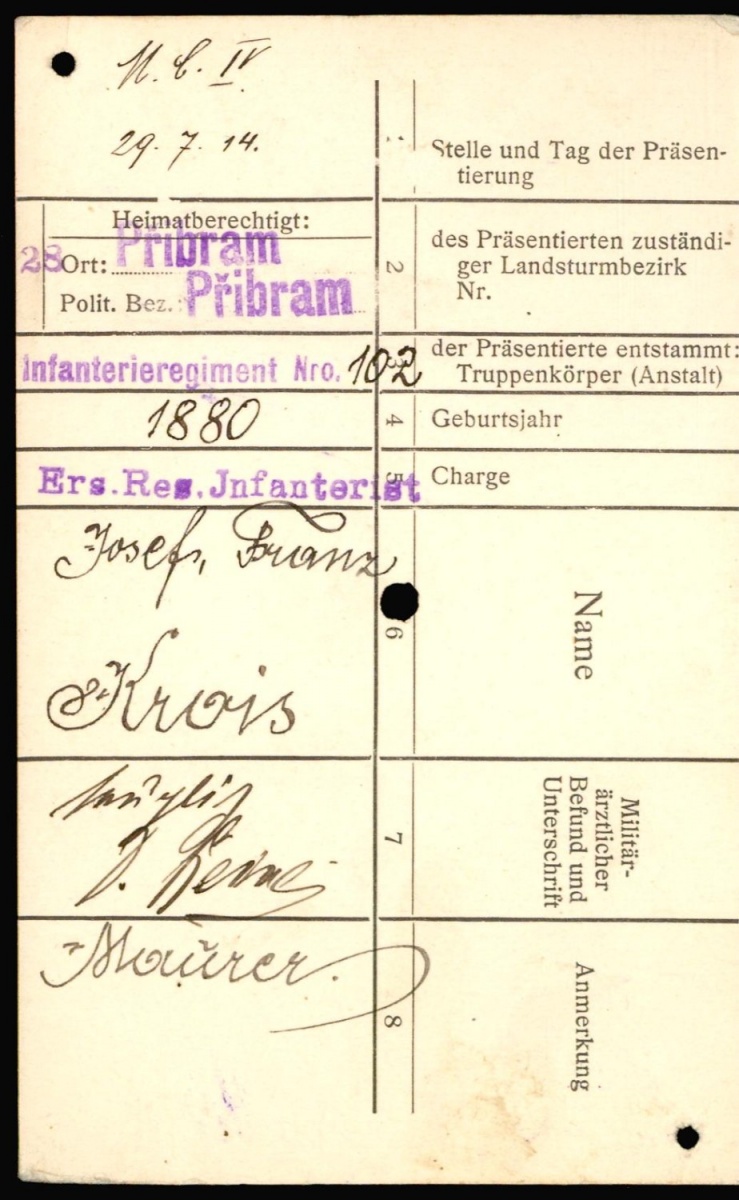 M. C. IV
29. 7. 14.
1
Stelle und Tag der Präsen-
tierung
Heimatberechtigt:
28
Ort: Příbram
Polit. Bez.: Příbram
2
des Präsentierten zuständi-
ger Landsturmbezirk
Nr.
Infanterieregiment Nro. 102
3
der Präsentierte entstammt:
Truppenkörper (Anstalt)
1880
4
Geburtsjahr
Ers.Res.Jnfanterist
5
Charge
Josef, Franz
Krois
6
Name
tauglich
7
Militär-
ärztlicher
Befund und
Unterschrift
Maurer.
8
Anmerkung